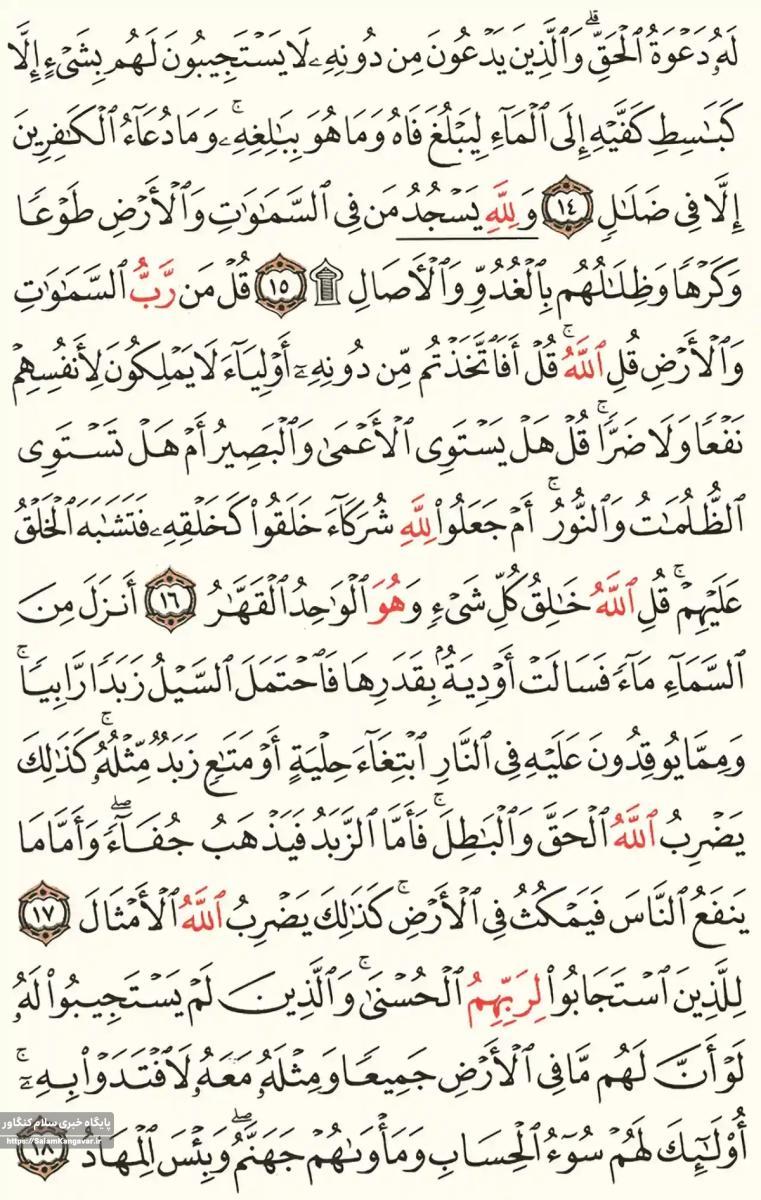 لَهُۥ دَعۡوَةُ ٱلۡحَقِّۚ وَٱلَّذِينَ يَدۡعُونَ مِن دُونِهِۦ لَا يَسۡتَجِيبُونَ لَهُم بِشَيۡءٍ إِلَّا
كَبَٰسِطِ كَفَّيۡهِ إِلَى ٱلۡمَآءِ لِيَبۡلُغَ فَاهُ وَمَا هُوَ بِبَٰلِغِهِۦۚ وَمَا دُعَآءُ ٱلۡكَٰفِرِينَ
إِلَّا فِي ضَلَٰلٖ ١٤ وَلِلَّهِ يَسۡجُدُۤ مَن فِي ٱلسَّمَٰوَٰتِ وَٱلۡأَرۡضِ طَوۡعٗا
وَكَرۡهٗا وَظِلَٰلُهُم بِٱلۡغُدُوِّ وَٱلۡأٓصَالِ ۩ ١٥ قُلۡ مَن رَّبُّ ٱلسَّمَٰوَٰتِ
وَٱلۡأَرۡضِ قُلِ ٱللَّهُۚ قُلۡ أَفَٱتَّخَذۡتُم مِّن دُونِهِۦٓ أَوۡلِيَآءَ لَا يَمۡلِكُونَ لِأَنفُسِهِمۡ
نَفۡعٗا وَلَا ضَرّٗاۚ قُلۡ هَلۡ يَسۡتَوِي ٱلۡأَعۡمَىٰ وَٱلۡبَصِيرُ أَمۡ هَلۡ تَسۡتَوِي
ٱلظُّلُمَٰتُ وَٱلنُّورُۚ أَمۡ جَعَلُواْ لِلَّهِ شُرَكَآءَ خَلَقُواْ كَخَلۡقِهِۦ فَتَشَٰبَهَ ٱلۡخَلۡقُ
عَلَيۡهِمۡۚ قُلِ ٱللَّهُ خَٰلِقُ كُلِّ شَيۡءٖ وَهُوَ ٱلۡوَٰحِدُ ٱلۡقَهَّٰرُ ١٦ أَنزَلَ مِنَ
ٱلسَّمَآءِ مَآءٗ فَسَالَتۡ أَوۡدِيَةُۢ بِقَدَرِهَا فَٱحۡتَمَلَ ٱلسَّيۡلُ زَبَدٗا رَّابِيٗاۚ
وَمِمَّا يُوقِدُونَ عَلَيۡهِ فِي ٱلنَّارِ ٱبۡتِغَآءَ حِلۡيَةٍ أَوۡ مَتَٰعٖ زَبَدٞ مِّثۡلُهُۥۚ كَذَٰلِكَ
يَضۡرِبُ ٱللَّهُ ٱلۡحَقَّ وَٱلۡبَٰطِلَۚ فَأَمَّا ٱلزَّبَدُ فَيَذۡهَبُ جُفَآءٗۖ وَأَمَّا مَا
يَنفَعُ ٱلنَّاسَ فَيَمۡكُثُ فِي ٱلۡأَرۡضِۚ كَذَٰلِكَ يَضۡرِبُ ٱللَّهُ ٱلۡأَمۡثَالَ ١٧
لِلَّذِينَ ٱسۡتَجَابُواْ لِرَبِّهِمُ ٱلۡحُسۡنَىٰۚ وَٱلَّذِينَ لَمۡ يَسۡتَجِيبُواْ لَهُۥ
لَوۡ أَنَّ لَهُم مَّا فِي ٱلۡأَرۡضِ جَمِيعٗا وَمِثۡلَهُۥ مَعَهُۥ لَٱفۡتَدَوۡاْ بِهِۦٓۚ
أُوْلَٰٓئِكَ لَهُمۡ سُوٓءُ ٱلۡحِسَابِ وَمَأۡوَىٰهُمۡ جَهَنَّمُۖ وَبِئۡسَ ٱلۡمِهَادُ ١٨
پایگاه خبری سلام کنگاور
https://SalamKangavar.ir